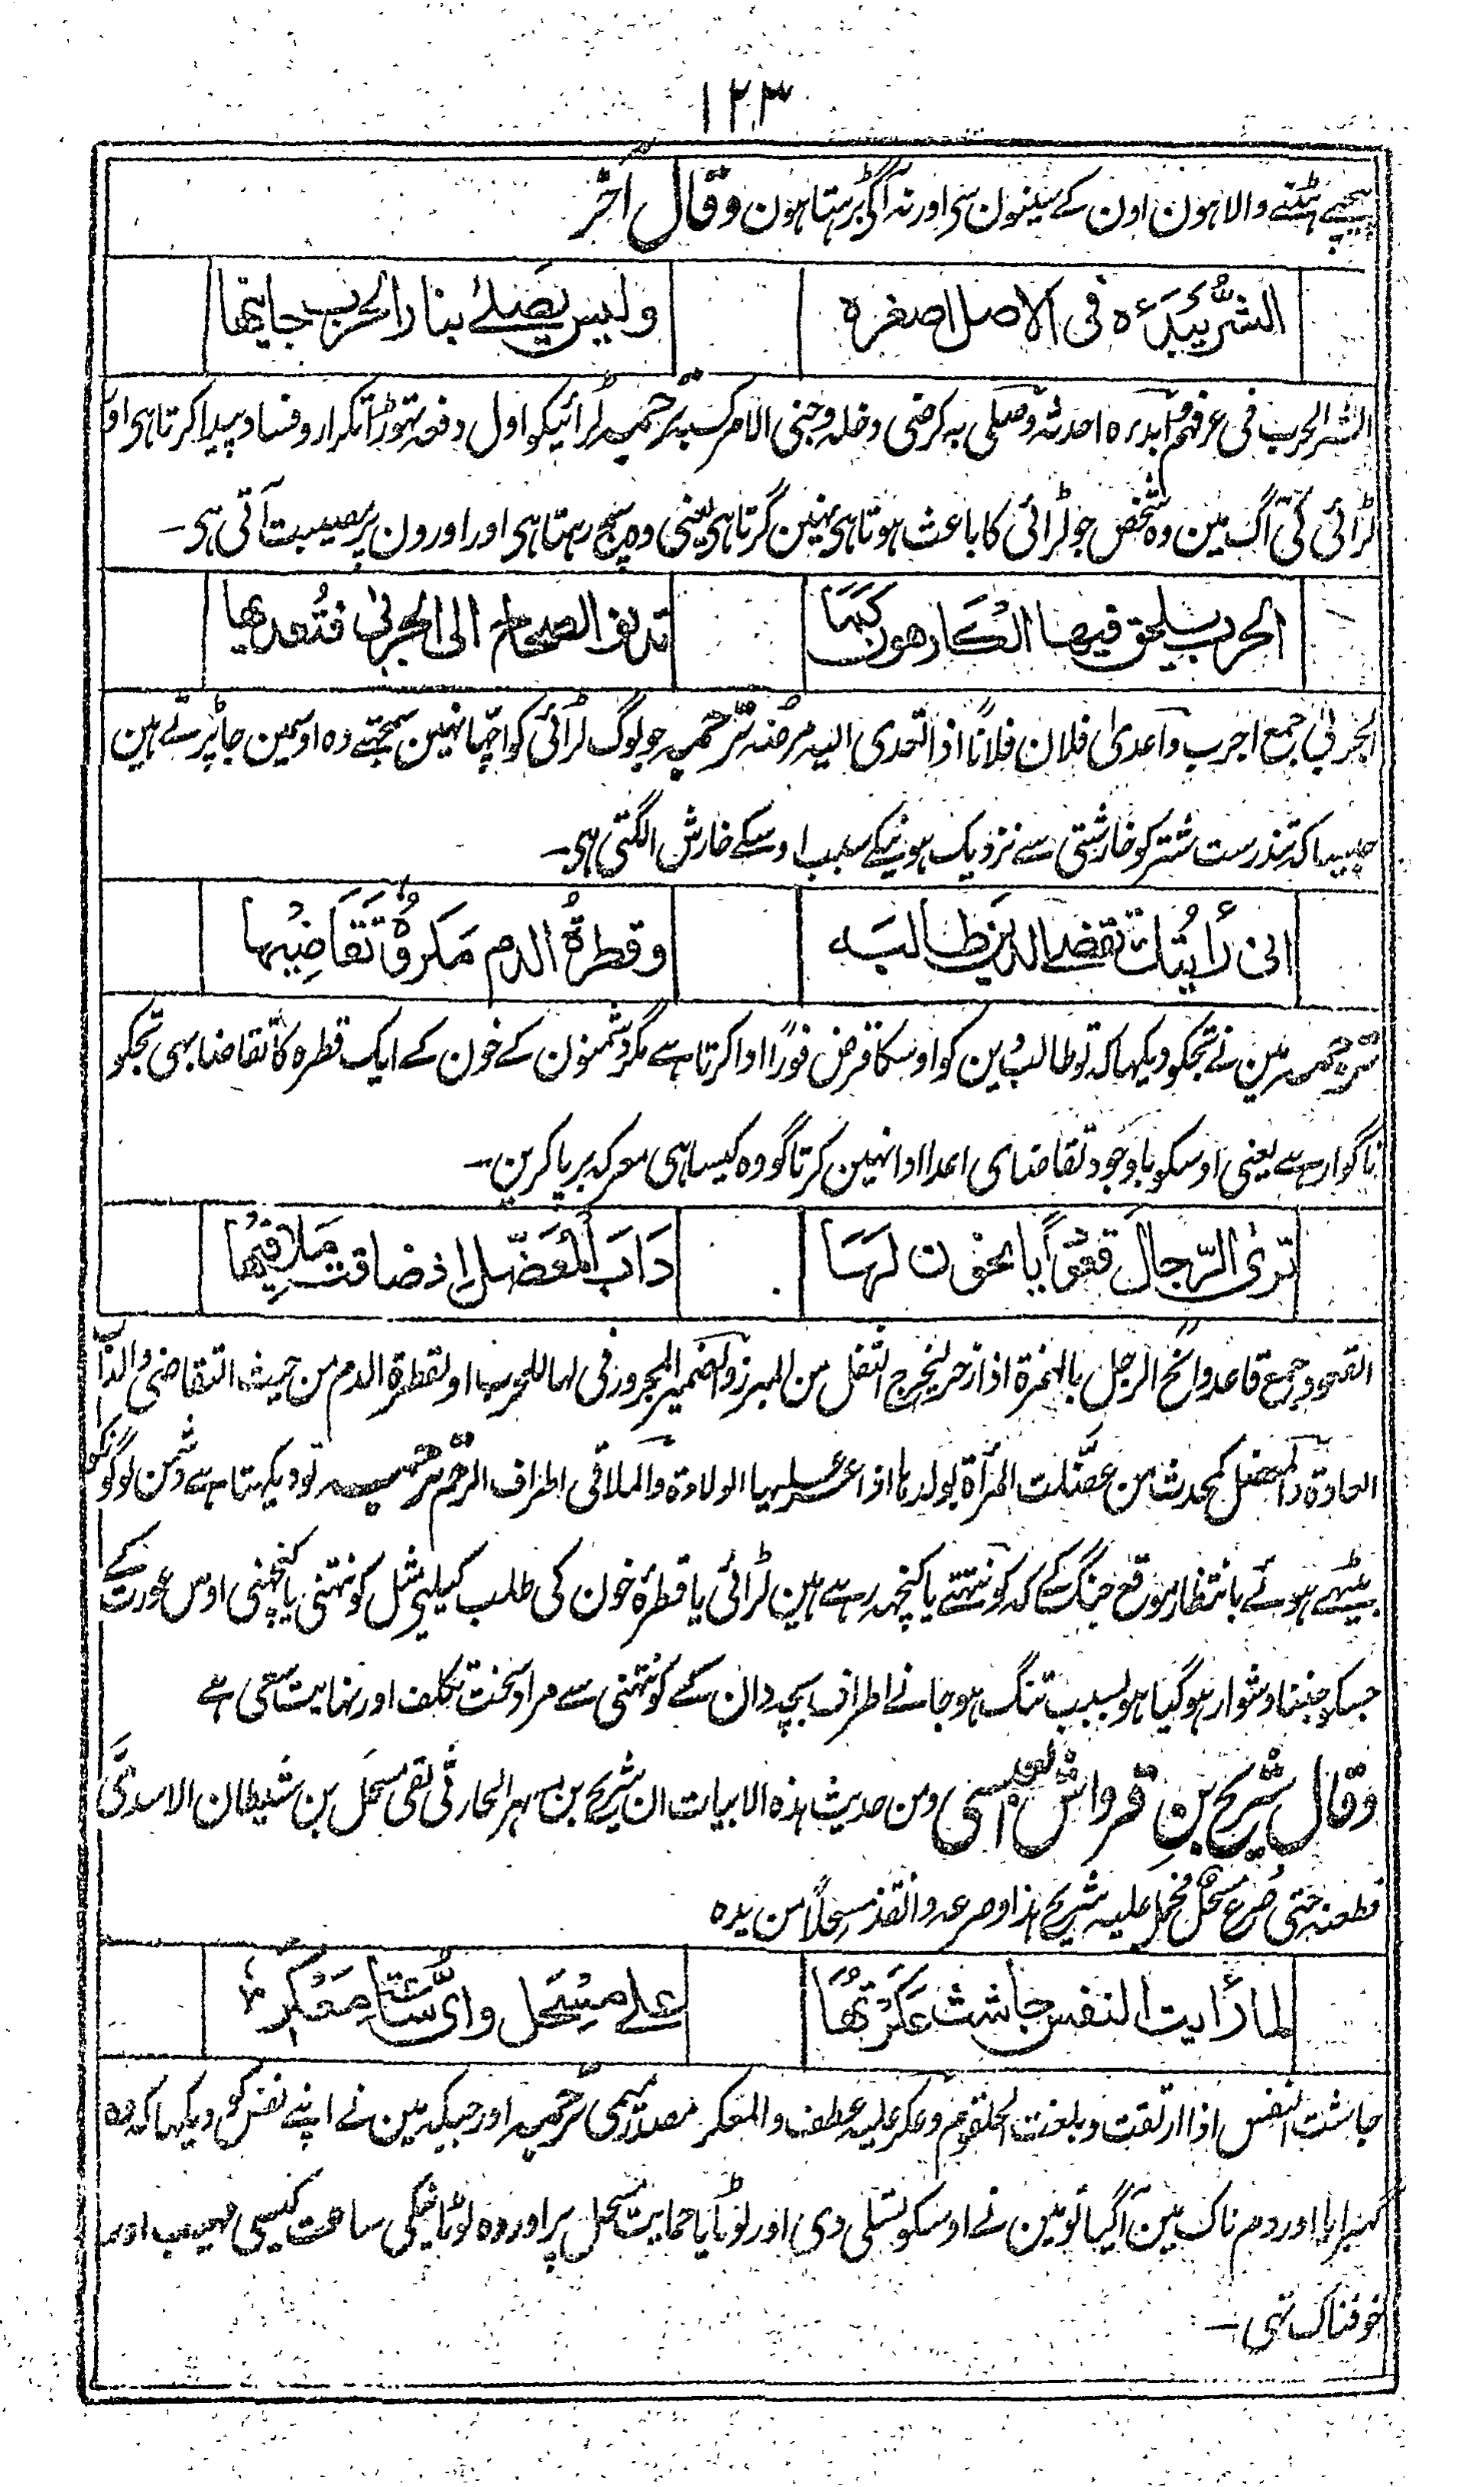 ١٢٣
پیچھے ہٹنے والا ہون اون کے سینون سی اور نہ آگی بڑہتا ہون وقال آخر
الشَّرُّ یَبْدَءُہ فی الاصل اصغرہ ولیس یَصْلےٰ بنار الحرب جانیہا
الشر الحرب فی عرفہم وابدءہ احدثہ وصلی بہ کرضی دخلہ وجنی الامر کسبہ ترجمہ لڑائیکو اول دفعہ تہوڑا تکرار وفساد پیدا کرتا ہی اور
لڑائی کی آگ مین وہ شخص جو لڑائی کا باعث ہوتا ہی نہین گرتا ہی یعنی وہ بچ رہتا ہی اور اورون پر مصیبت آتی ہی ۔
الحرب یلحق فیہا الکارھون کَمَا تدنو الصحاح الی الجربیٰ فتُعدیہا
الجربیٰ جمع اجرب واعدیٰ فلان فلانًا اذا تعدی الیہ مرضہ ترجمہ جو لوگ لڑائی کو اچہا نہین سمجہتے وہ اوسمین جا پڑتے ہین
جیسا کہ تندرست شتر کو خارشتی سے نزدیک ہونیکے سبب اوسکے خارش الگتی ہی۔
انی رَأیتُک تقضی الدین طالبَہ وقطرۃُ الدم مَکروۃٌ تَقَاضِیہا
ترجمہ مین نے تجکو دیکہا کہ تو طالب دین کو اوسکا قرض فورًا ادا کرتا ہے مگر دشمنون کے خون کے ایک قطرہ کا تقاضا بہی تجکو
ناگوار ہے یعنی اوسکو باوجود تقاضای اعدا ادا نہین کرتا گو وہ کیسا ہی معرکہ برپا کرین۔
تَریٰ الرّجالَ قعودًا یانحون لَہَا دَابَ المُعَضّل اذ ضاقت مَلاقیہا
القعود جمع قاعد وانح الرجل بالہمزۃ اذا زحر لیخرج الثقل من المبرز والضمیر المجرور فی لہا للحرب او لقطرۃ الدم من حیث التقاضی والدأب
العادۃ والمعضل کمحدث من عضّلت المرأۃ بولدہا اذا عسر علیہا الولادۃ والملاقی اطراف الرحم ترجمہ تو دیکہتا ہے دشمن لوگونکو
بیٹہے ہوئے بانتظار موقع جنگ کے کہ کونتہتے یا کنچہ رہے ہین لڑائی یا قطرۂ خون کی طلب کیلیی مثل کونتہنی یا کنچہنی اوس عورت کے
جسکا جننا دشوار ہوگیا ہو بسبب تنگ ہو جانے اطراف بچہ دان کے کونتہنی سے مراد سخت تکلف اور نہایت سعی ہے
وقال شریح بن قرواش العبسی ومن حدیث ہذہ الابیات ان شریح بن مسہر الحارثی لقی مسحل بن شیطان الاسدی
فطعنہ حتی صُرع مسحل فحمل علیہ شریح ہذا وصرعہ وانقذ مسحلًا من یدہ
لما رَأیت النفس جاشت عَکَرْتُہَا علے مِسْحَل وایُّ سَاعَۃِ مَعْکَرِ
جاشت النفس اذا ارتفعت وبلغت الحلقوم وعکر علیہ عطف والمعکر مصدر میمی ترجمہ اور جبکہ مین نے اپنے نفس کو دیکہا کہ وہ
گہبرایا اور دم ناک مین آگیا تو مین نے اوسکو تسلی دی اور لوٹایا حمایت مسحل پر اور وہ لوٹانیکی ساعت کیسی مہیب اور
خوفناک تہی ۔